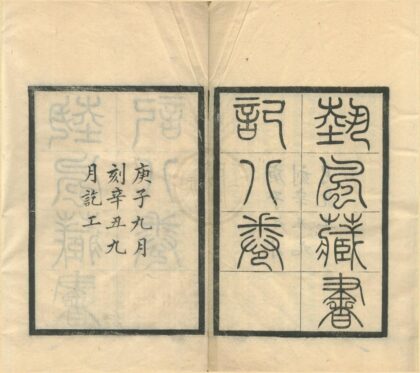 埶風藏書
記八卷
庚子九月
刻辛丑九
月訖工